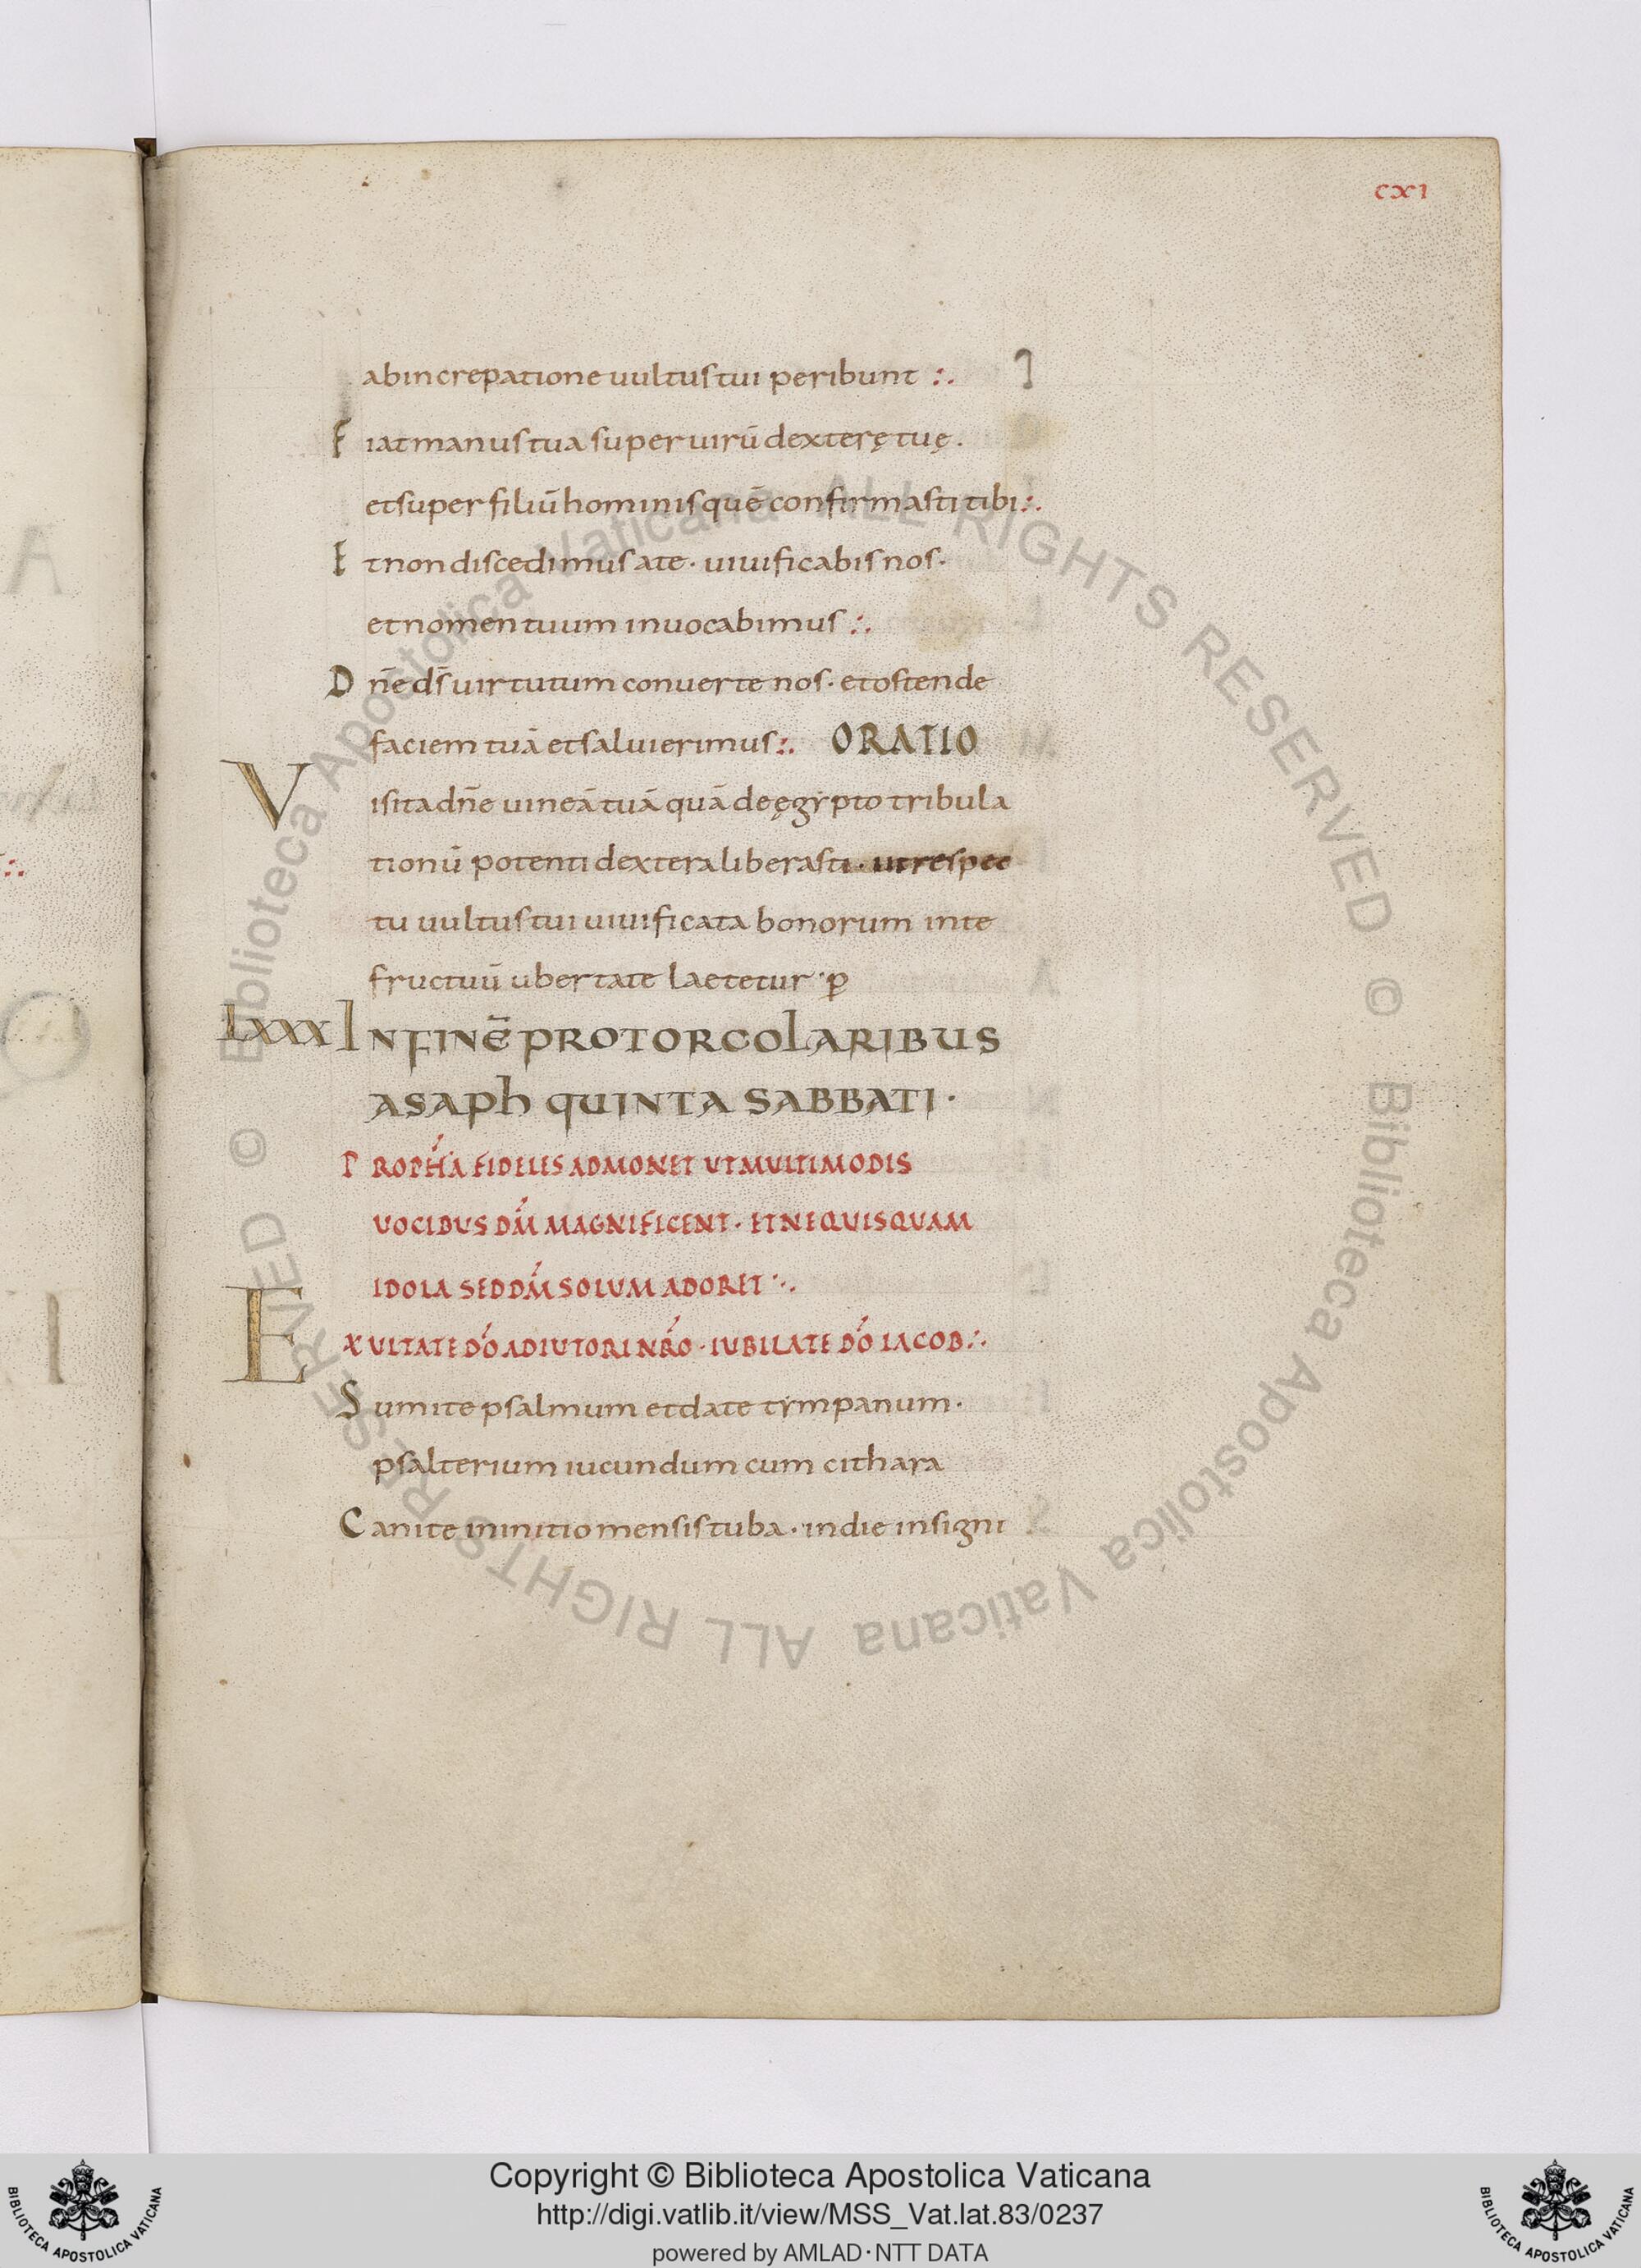 CXI
ab increpatione uultus tui peribunt :.
Fiat manus tua super uirū dexterę tuę .
et super filiū hominis quē confirmasti tibi :.
Et non discedimus a te · uiuificabis nos ·
et nomen tuum inuocabimus :.
Dn̄e ds̄ uirtutum conuerte nos · et ostende
faciem tuā et salui erimus :. ORATIO
Visita dn̄e uineā tuā quā de ęgẏpto tribula
tionū potenti dextera liberasti · ut respec
tu uultus tui uiuificata bonorum in te
fructuū ubertate laetetur · ꝑ
LXXX IN FINĒ PRO TORCOLARIBUS
ASAPH QUINTA SABBATI ·
PROPH́A FIDELES ADMONET UT MULTIMODIS
UOCIBUS DḾ MAGNIFICENT · ET NE QUISQUAM
IDOLA SED DḾ SOLUM ADORET :.
EXULTATE DÓ ADIUTORI NRÓ · IUBILATE DÓ IACOB :.
Sumite psalmum et date tẏmpanum ·
psalterium iucundum cum cithara
Canite in initio mensis tuba · in die insigni
Copyright © Biblioteca Apostolica Vaticana
http://digi.vatlib.it/view/MSS_Vat.lat.83/0237
powered by AMLAD·NTT DATA
BIBLIOTECA APOSTOLICA VATICANA
BIBLIOTECA APOSTOLICA VATICANA
© Biblioteca Apostolica Vaticana ALL RIGHTS RESERVED © Biblioteca Apostolica Vaticana ALL RIGHTS RESERVED